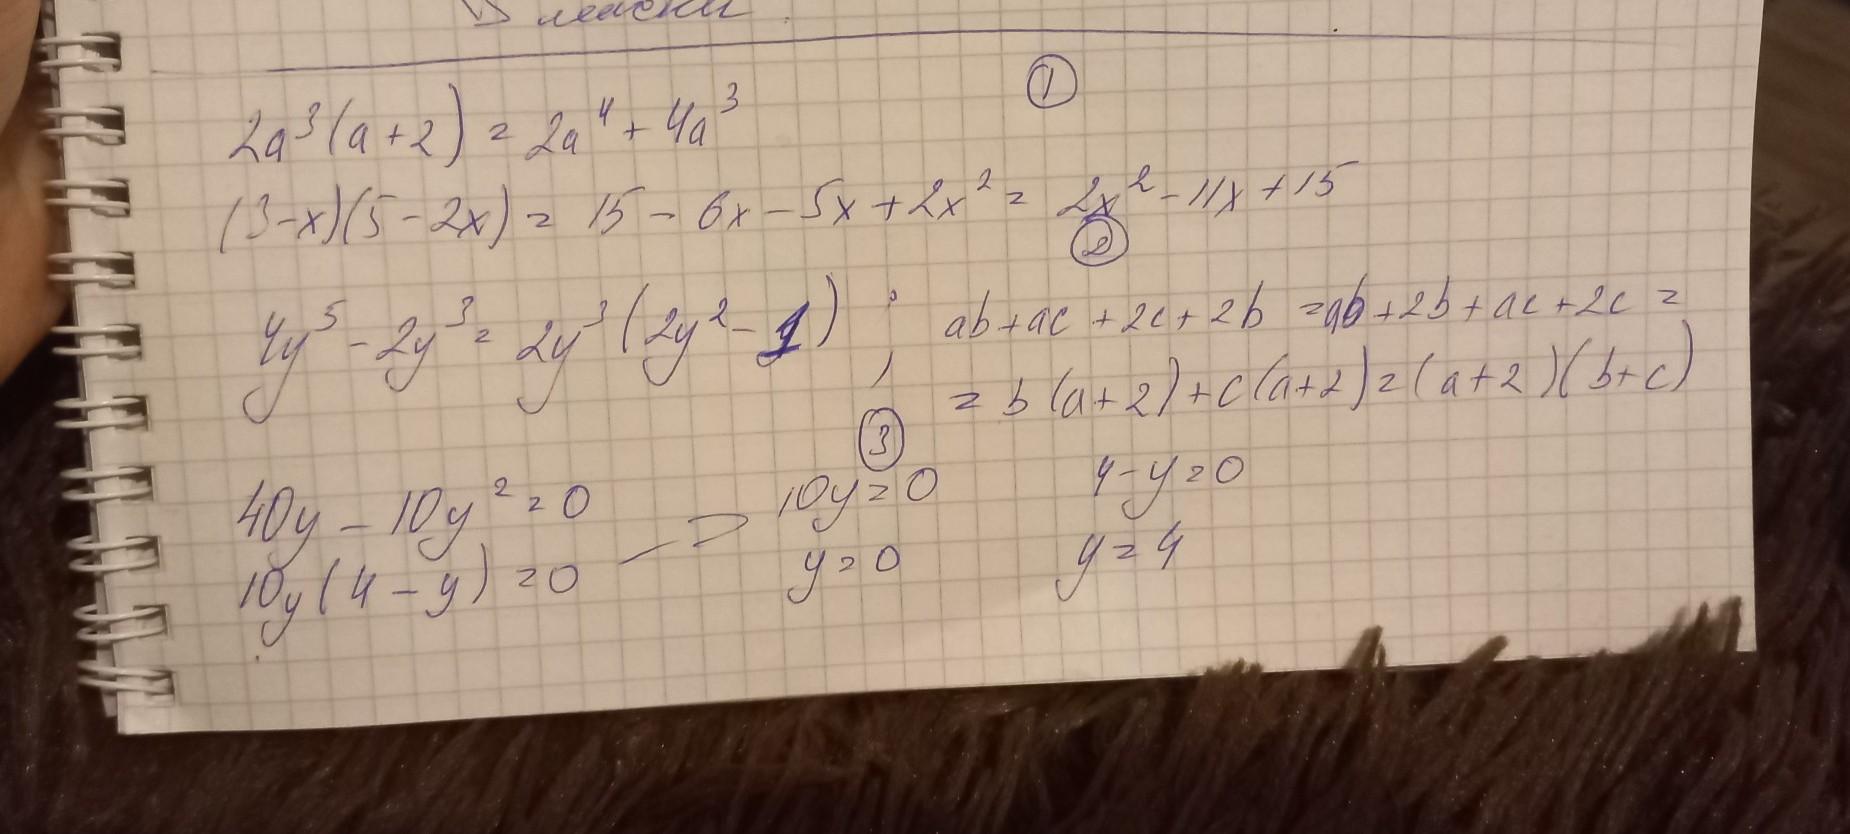 ①
2a³(a+2) = 2a⁴ + 4a³
(3-x)(5-2x) = 15 - 6x - 5x + 2x² = 2x² - 11x + 15
②
4y⁵ - 2y³ = 2y³(2y² - 1) ; ab + ac + 2c + 2b = ab + 2b + ac + 2c =
= b(a+2) + c(a+2) = (a+2)(b+c)
③
40y - 10y² = 0 10y = 0 4 - y = 0
10y(4 - y) = 0 => y = 0 y = 4